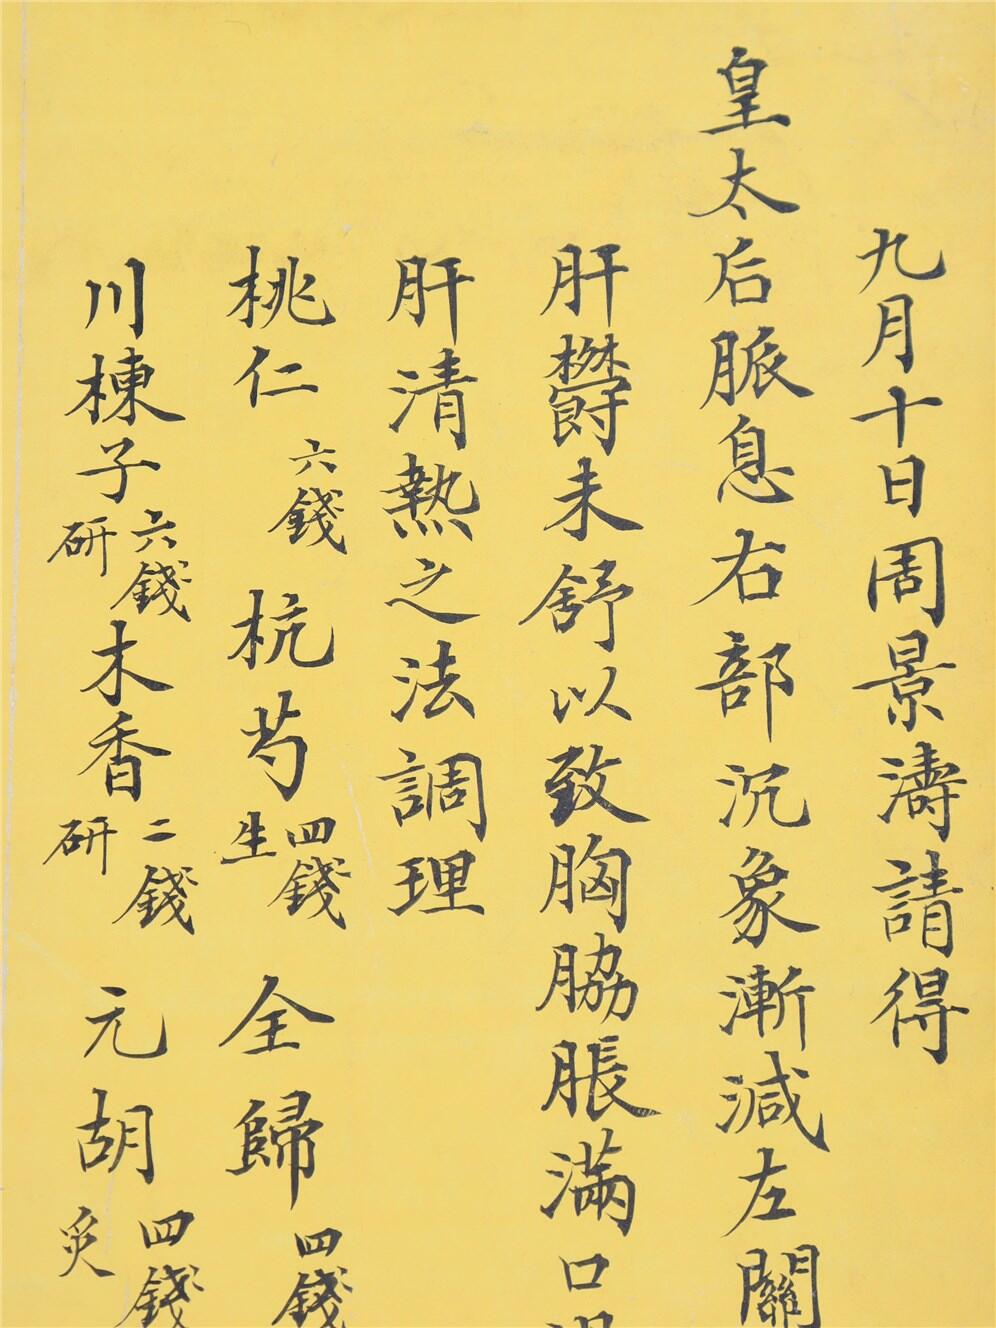 九月十日周景濤請得
皇太后脈息右部沉象漸減左關
肝鬱未舒以致胸脇脹滿口
肝清熱之法調理
桃仁六錢 杭芍四錢生 全歸四錢
川楝子六錢研 木香二錢研 元胡四錢炙